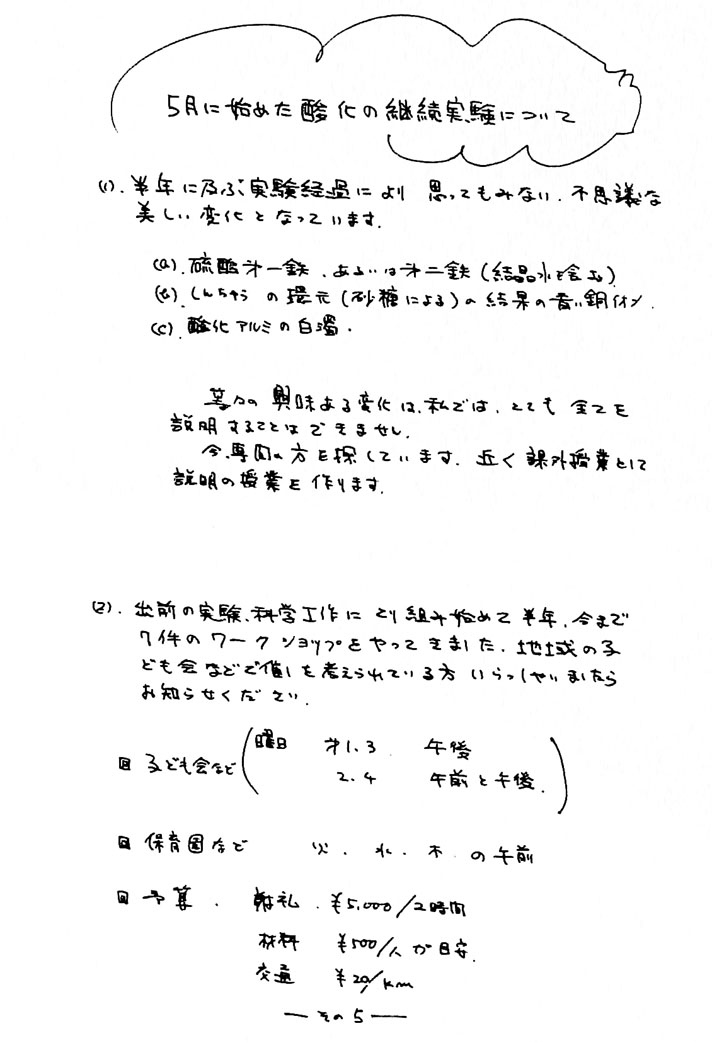 5月に始めた酸化の継続実験について
(1). 半年に及ぶ実験経過により 思ってもみない、不思議な
美しい変化となっています.
(a). 硫酸才一鉄、あるいは才二鉄 (結晶水を含む)
(b). しんちゅうの環元 (砂糖による) の結果の青い銅イオン.
(c). 酸化アルミの白濁.
等々の興味ある変化は、私では、とても 全てを
説明することはできません.
今、専門の方を探しています. 近く課外授業として
説明の授業を作ります.
(2). 出前の実験、科学工作にとり組み始めて半年、今まで
7件のワークショップをやってきました. 地域の子
ども会などで催しを考えられている方いらっしゃいましたら
お知らせください.
回 子ども会など (曜日 才1.3 午後
2.4 午前と午後.)
回 保育園など 火. 水. 木. の午前
回 予算. 謝礼. ¥5,000/2時間
材料 ¥500/人が目安.
交通 ¥20/km
— その5 —